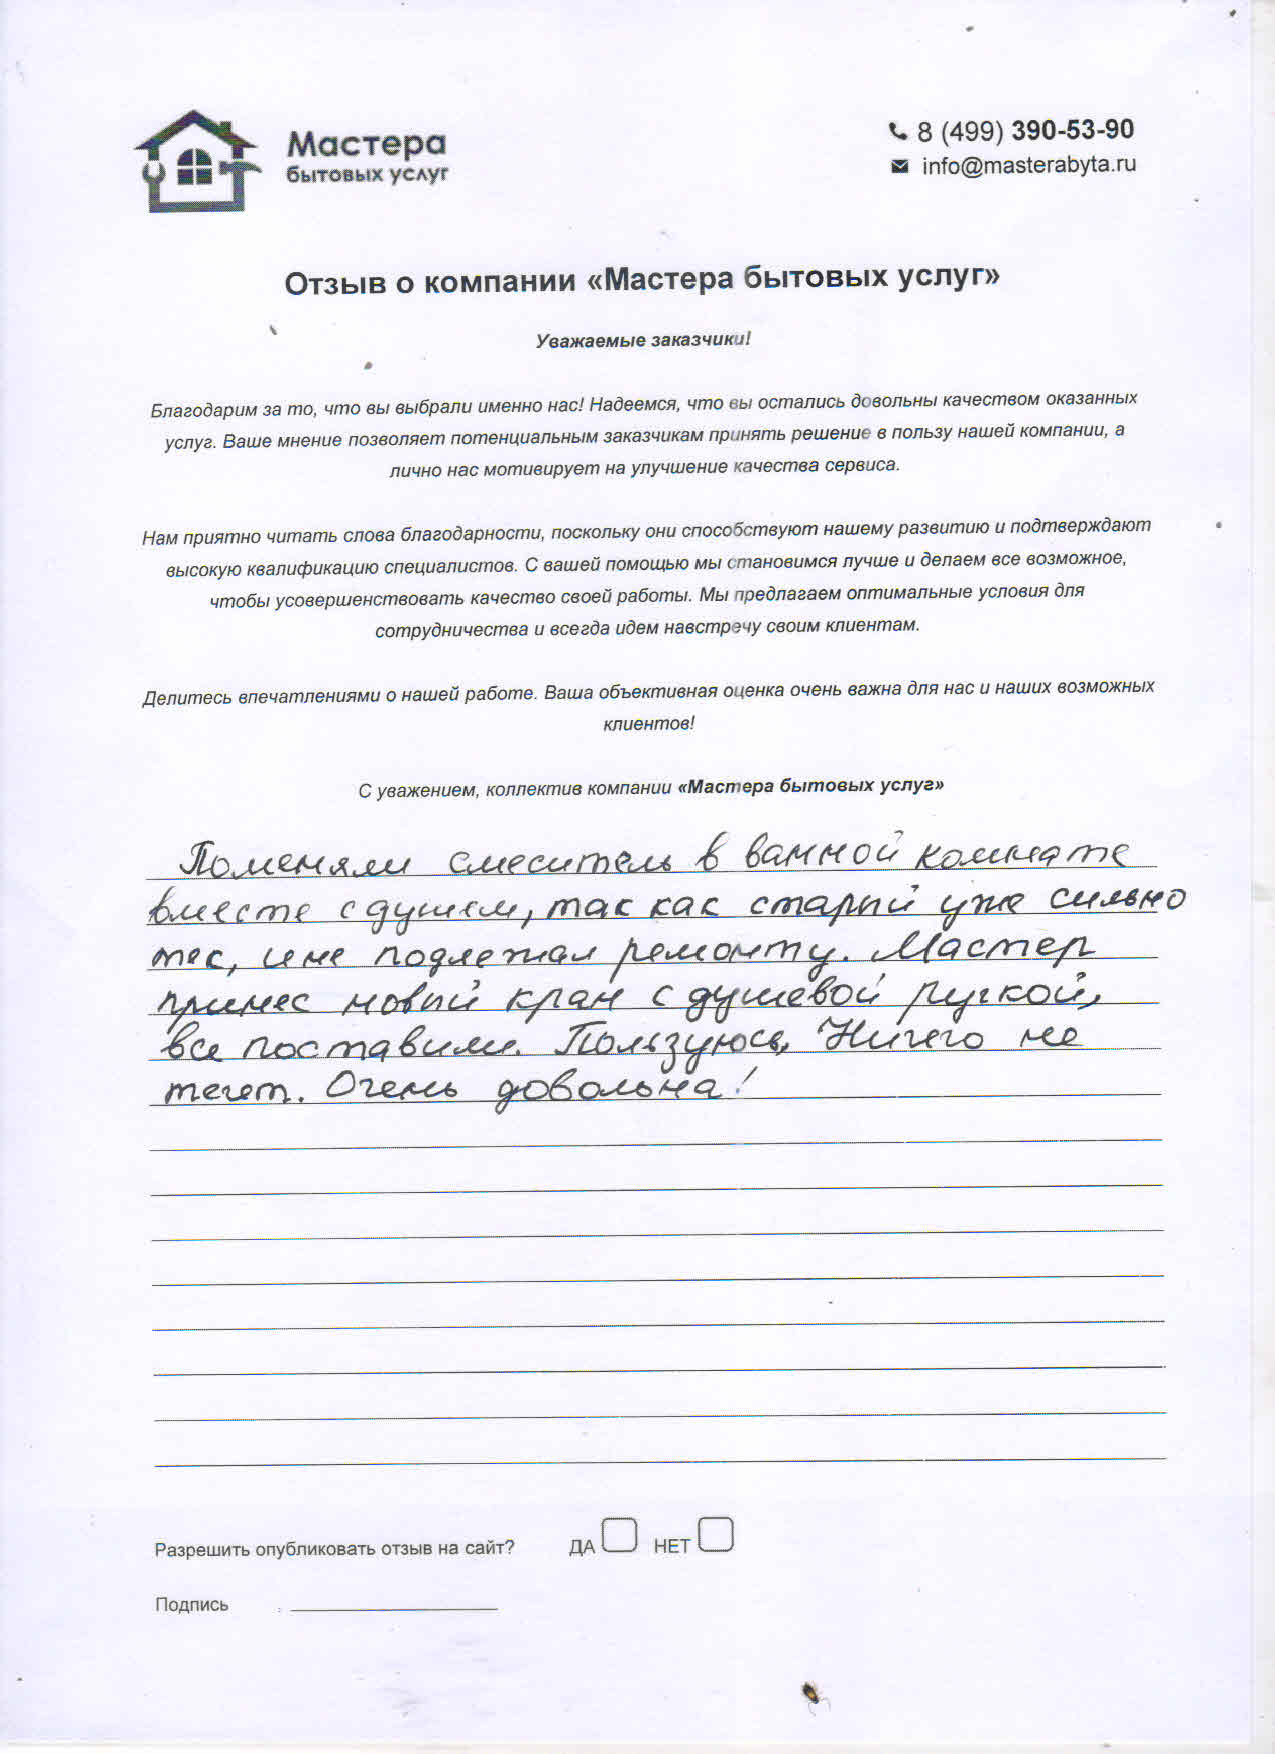 Мастера
бытовых услуг
8 (499) 390-53-90
info@masterabyta.ru
Отзыв о компании «Мастера бытовых услуг»
Уважаемые заказчики!
Благодарим за то, что вы выбрали именно нас! Надеемся, что вы остались довольны качеством оказанных
услуг. Ваше мнение позволяет потенциальным заказчикам принять решение в пользу нашей компании, а
лично нас мотивирует на улучшение качества сервиса.
Нам приятно читать слова благодарности, поскольку они способствуют нашему развитию и подтверждают
высокую квалификацию специалистов. С вашей помощью мы становимся лучше и делаем все возможное,
чтобы усовершенствовать качество своей работы. Мы предлагаем оптимальные условия для
сотрудничества и всегда идем навстречу своим клиентам.
Делитесь впечатлениями о нашей работе. Ваша объективная оценка очень важна для нас и наших возможных
клиентов!
С уважением, коллектив компании «Мастера бытовых услуг»
Поменяли смеситель в ванной комнате
вместе с душем, так как старый уже сильно
тес, и не подлежал ремонту. Мастер
принес новый кран с душевой ручкой,
все поставили. Пользуюсь, Ничего не
течет. Очень довольна!
Разрешить опубликовать отзыв на сайт? ДА НЕТ
Подпись